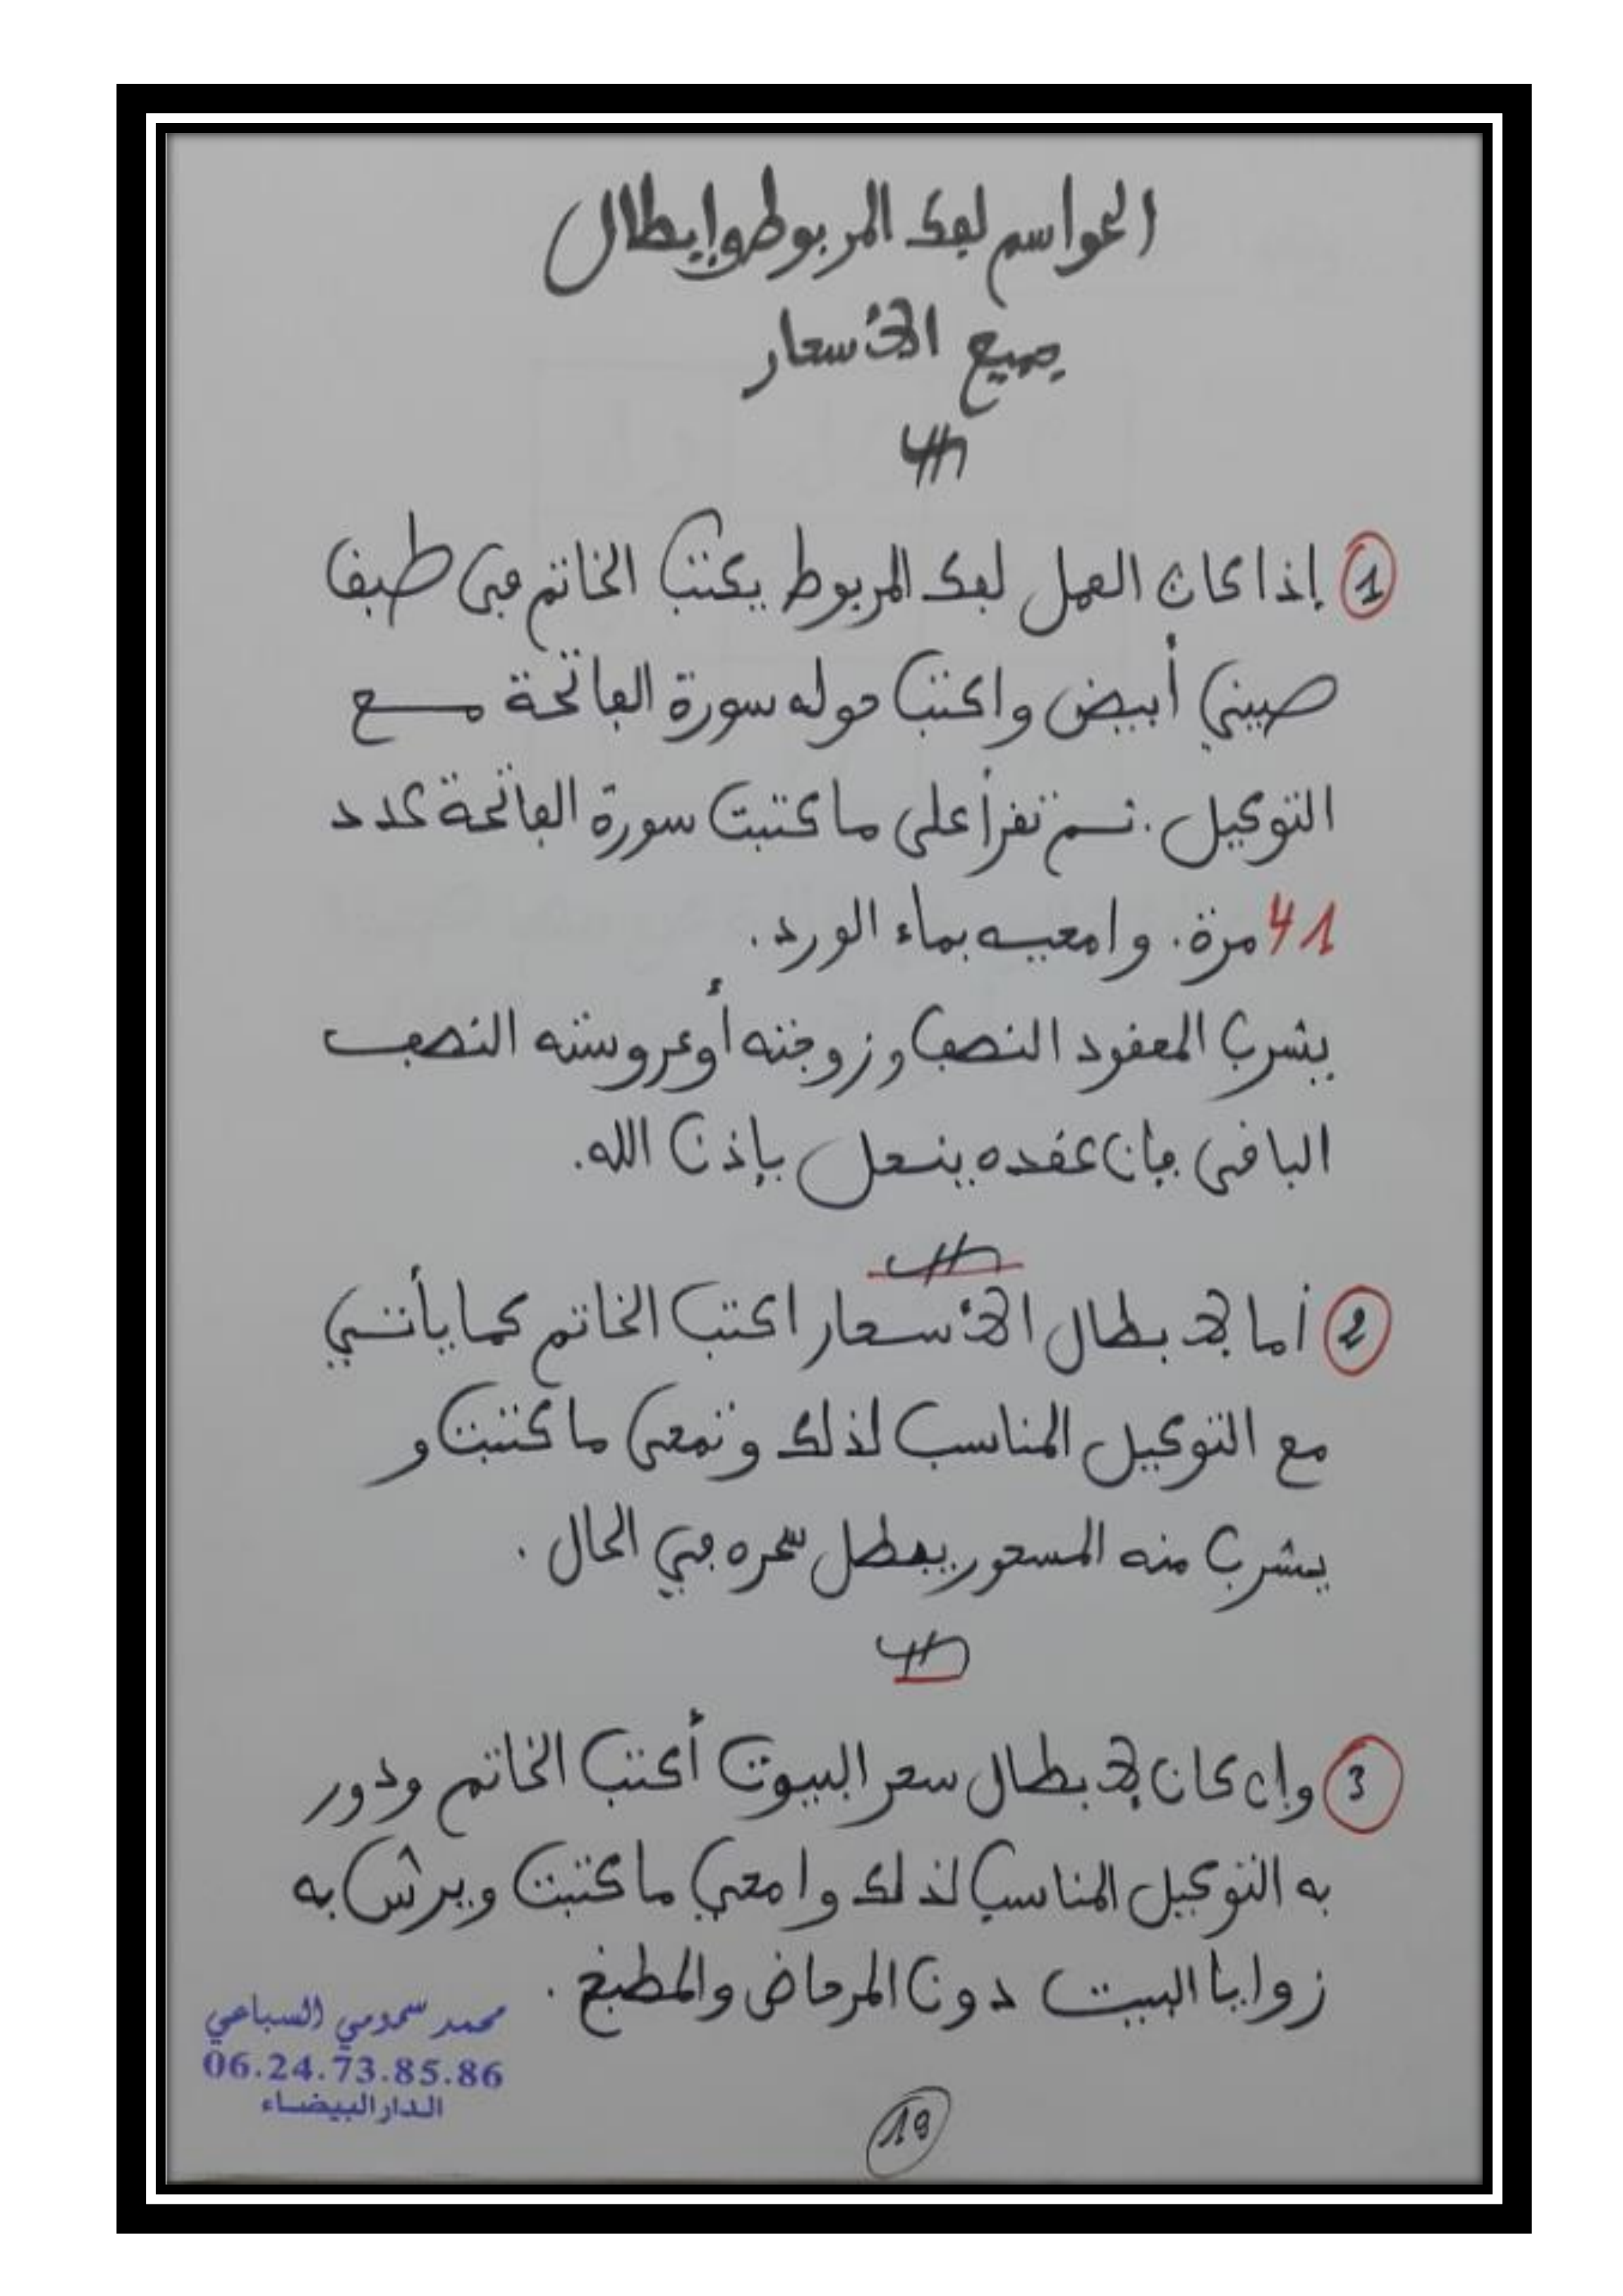 الحواسم لفك المربوط وإبطال
جميع الأسحار
1 إذا كان العمل لفك المربوط يكتب الخاتم في طبق
صيني أبيض واكتب حوله سورة الفاتحة مع
التوكيل. ثم تقرأ على ما كتبت سورة الفاتحة عدد
41 مرة. وامحيه بماء الورد.
يشرب المعقود النصف وزوجته أو عروسته النصف
الباقي فإن عقده ينحل بإذن الله.
2 أما لإبطال الأسحار اكتب الخاتم كما يأتي
مع التوكيل المناسب لذلك وتمحى ما كتبت و
يشرب منه المسحور يبطل سحره في الحال.
3 وإن كان لإبطال سحر البيوت أكتب الخاتم ودور
به التوكيل المناسب لذلك وامحي ما كتبت ويرش به
زوايا البيت دون المرحاض والمطبخ.
محمد سمومي السباعي
06.24.73.85.86
الدار البيضاء
19